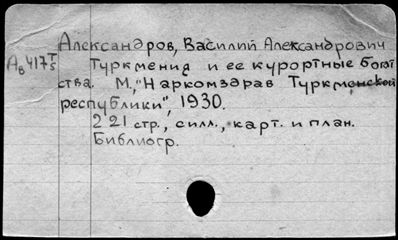 Александров, Василий Александрович
Ав417 Т/5 Туркмения и ее курортные богат
ства. М., "Наркомздрав Туркменской
республики", 1930.
221 стр., с илл., карт. и план.
Библиогр.